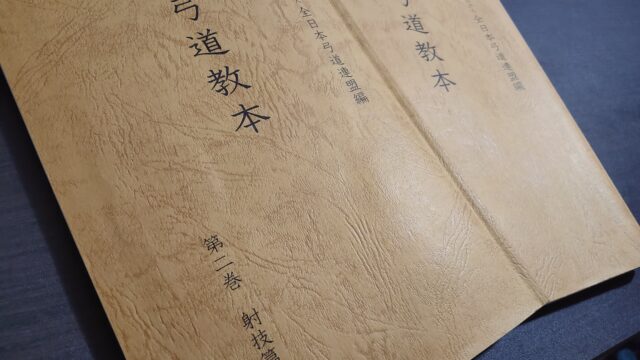 弓道教本
全日本弓道連盟編
第二巻 射技篇
弓道教本
全日本弓道連盟編